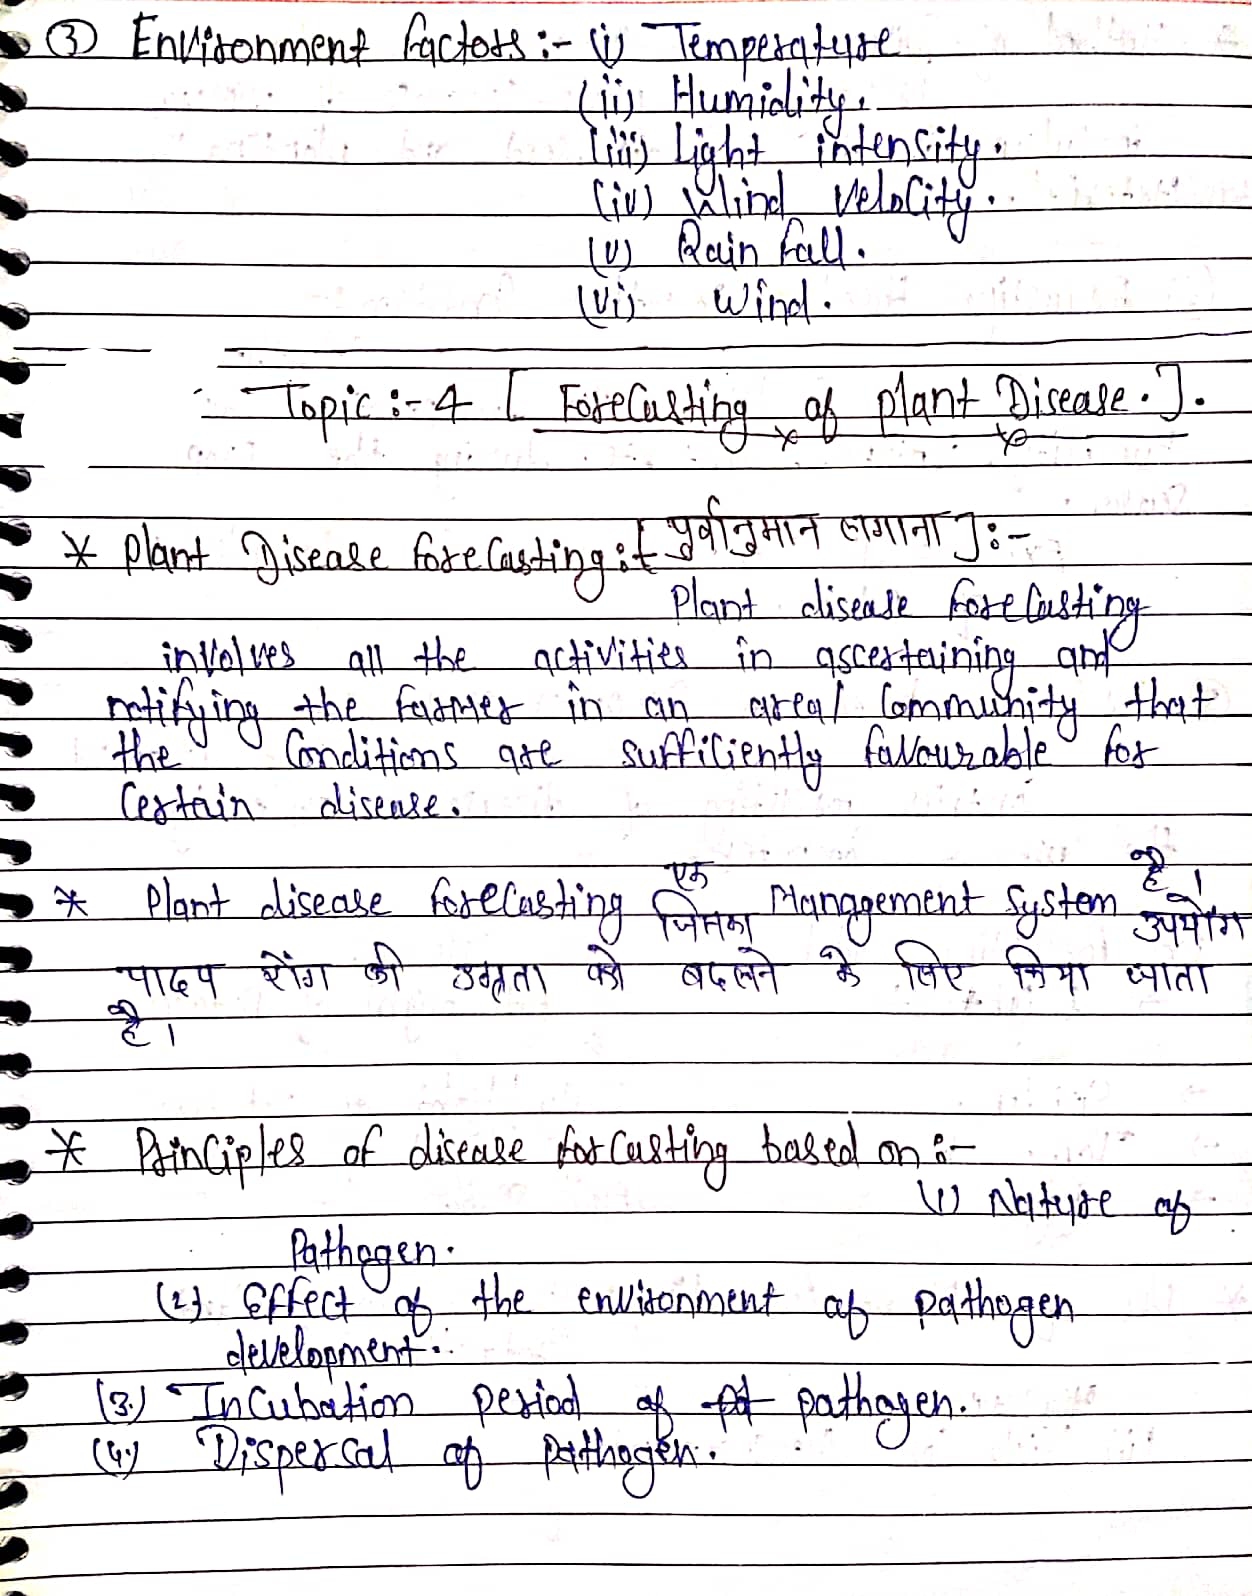 ③ Environment factors :- (i) Temperature
(ii) Humidity.
(iii) Light intensity.
(iv) Wind Velocity.
(v) Rain fall.
(vi) Wind.
Topic :- 4 [ Forecasting of plant Disease. ].
* Plant Disease forecasting :- [ पुर्वानुमान लगाना ] :-
Plant disease forecasting
involves all the activities in ascertaining and
notifying the farmer in an area/ Community that
the Conditions are sufficiently favourable for
Certain disease.
* Plant disease forecasting एक Management System है।
जिसका उपयोग
पादप रोग की उग्रता को बदलने के लिए किया जाता
है।
* Principles of disease forcasting based on :-
(1) Nature of
Pathogen.
(2). Effect of the environment of pathogen
development.
(3.) Incubation period of pathogen.
(4.) Dispersal of pathogen.